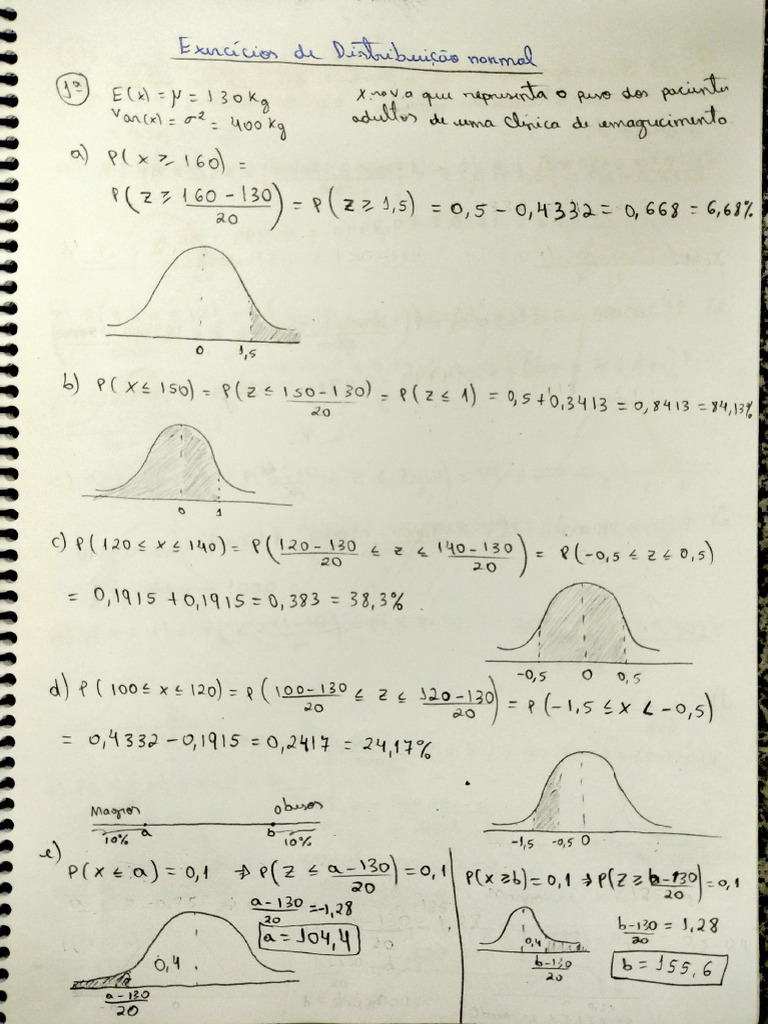 Exercícios de Distribuição normal
1ª) E(x) = μ = 130 kg
Var(x) = σ² = 400 kg
X: nova que representa o peso dos pacientes
adultos de uma clínica de emagrecimento
a) P(x ≥ 160) =
P(z ≥ (160 - 130)/20) = P(z ≥ 1,5) = 0,5 - 0,4332 = 0,668 = 6,68%
0 1,5
b) P(x ≤ 150) = P(z ≤ (150 - 130)/20) = P(z ≤ 1) = 0,5 + 0,3413 = 0,8413 = 84,13%
0 1
c) P(120 ≤ x ≤ 140) = P((120 - 130)/20 ≤ z ≤ (140 - 130)/20) = P(-0,5 ≤ z ≤ 0,5)
= 0,1915 + 0,1915 = 0,383 = 38,3%
-0,5 0 0,5
d) P(100 ≤ x ≤ 120) = P((100 - 130)/20 ≤ z ≤ (120 - 130)/20) = P(-1,5 ≤ x < -0,5)
= 0,4332 - 0,1915 = 0,2417 = 24,17%
-1,5 -0,5 0
Magros obesos
10% a b 10%
e)
P(x ≤ a) = 0,1 → P(z ≤ (a - 130)/20) = 0,1
(a - 130)/20 = -1,28
a = 104,4
0,4
(a - 130)/20
P(x ≥ b) = 0,1 → P(z ≥ (b - 130)/20) = 0,1
(b - 130)/20 = 1,28
b = 155,6
0,4
(b - 130)/20